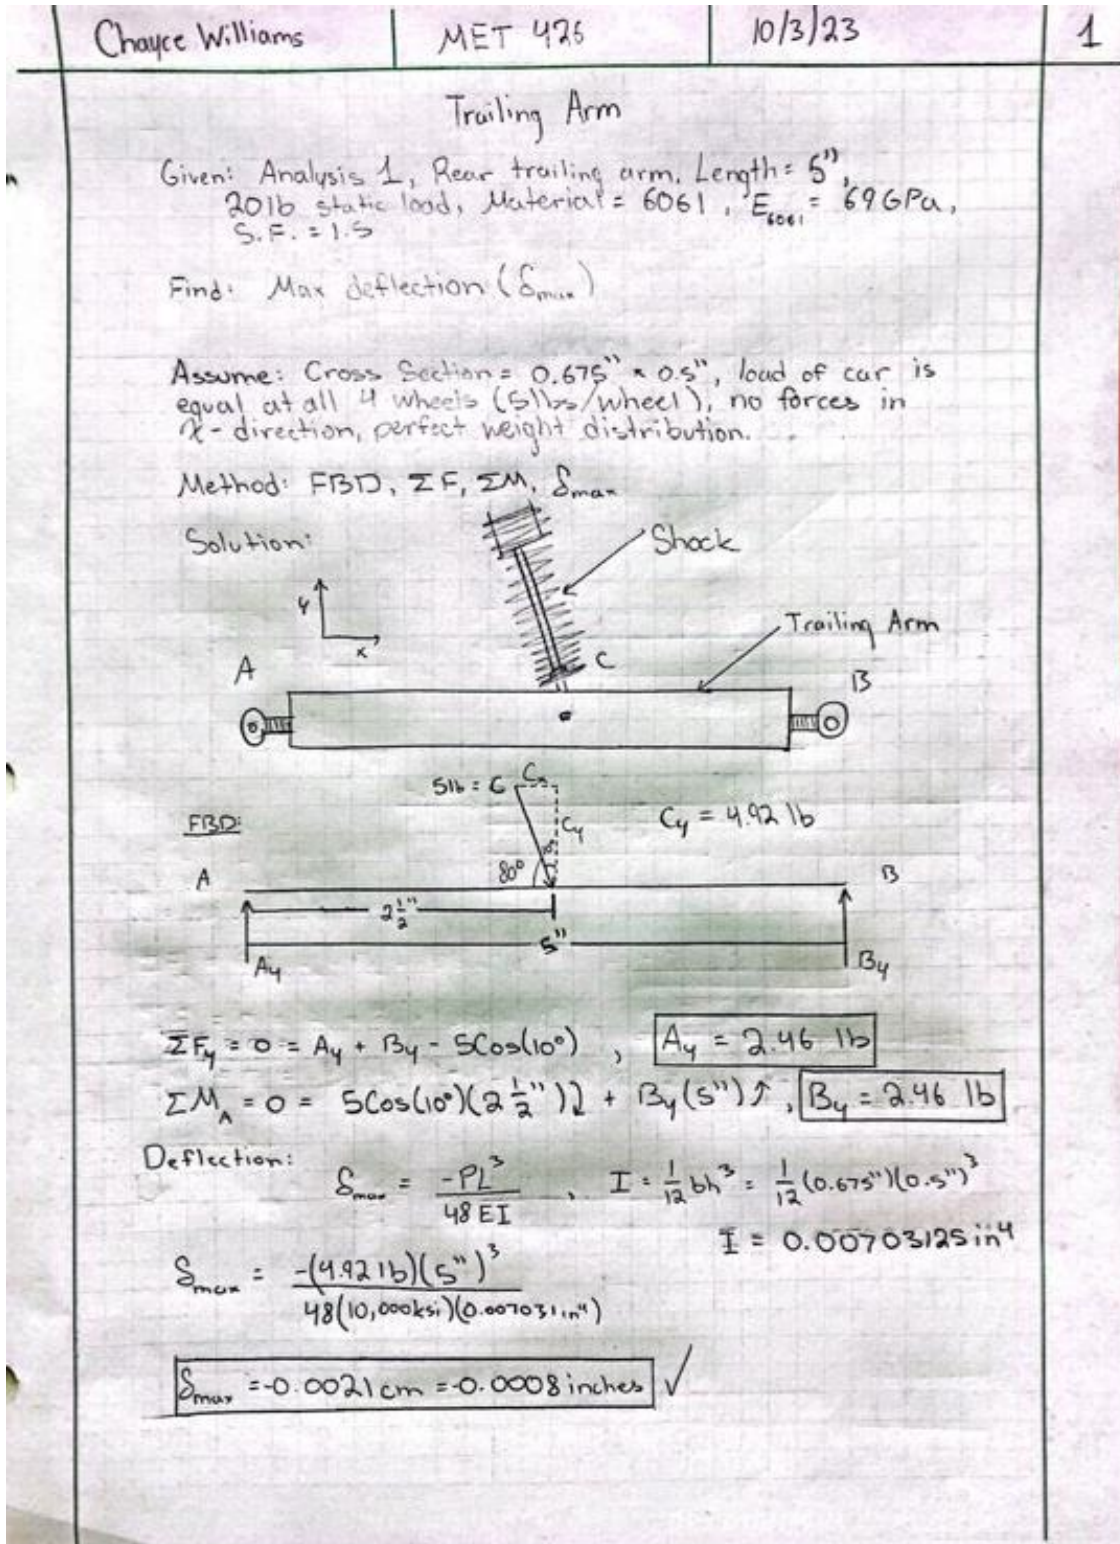 Chayce Williams MET 426 10/3/23 1
Trailing Arm
Given: Analysis 1, Rear trailing arm, Length = 5",
20lb static load, Material = 6061, E6061 = 69 GPa,
S.F. = 1.5
Find: Max deflection (δmax)
Assume: Cross Section = 0.675" × 0.5", load of car is
equal at all 4 wheels (5lbs/wheel), no forces in
x-direction, perfect weight distribution.
Method: FBD, ΣF, ΣM, δmax
Solution:
Shock
y
x
Trailing Arm
A
C
B
5lb = C Cx
FBD:
Cy
Cy = 4.92 lb
80°
A
B
2 1/2"
5"
Ay
By
ΣFy = 0 = Ay + By - 5Cos(10°) , Ay = 2.46 lb
ΣMA = 0 = 5Cos(10°)(2 1/2")↓ + By(5")↑, By = 2.46 lb
Deflection:
δmax = -PL³/48EI , I = 1/12 bh³ = 1/12 (0.675")(0.5")³
I = 0.00703125 in⁴
δmax = -(4.92 lb)(5")³/48(10,000ksi)(0.007031in⁴)
δmax = -0.0021 cm = -0.0008 inches ✓